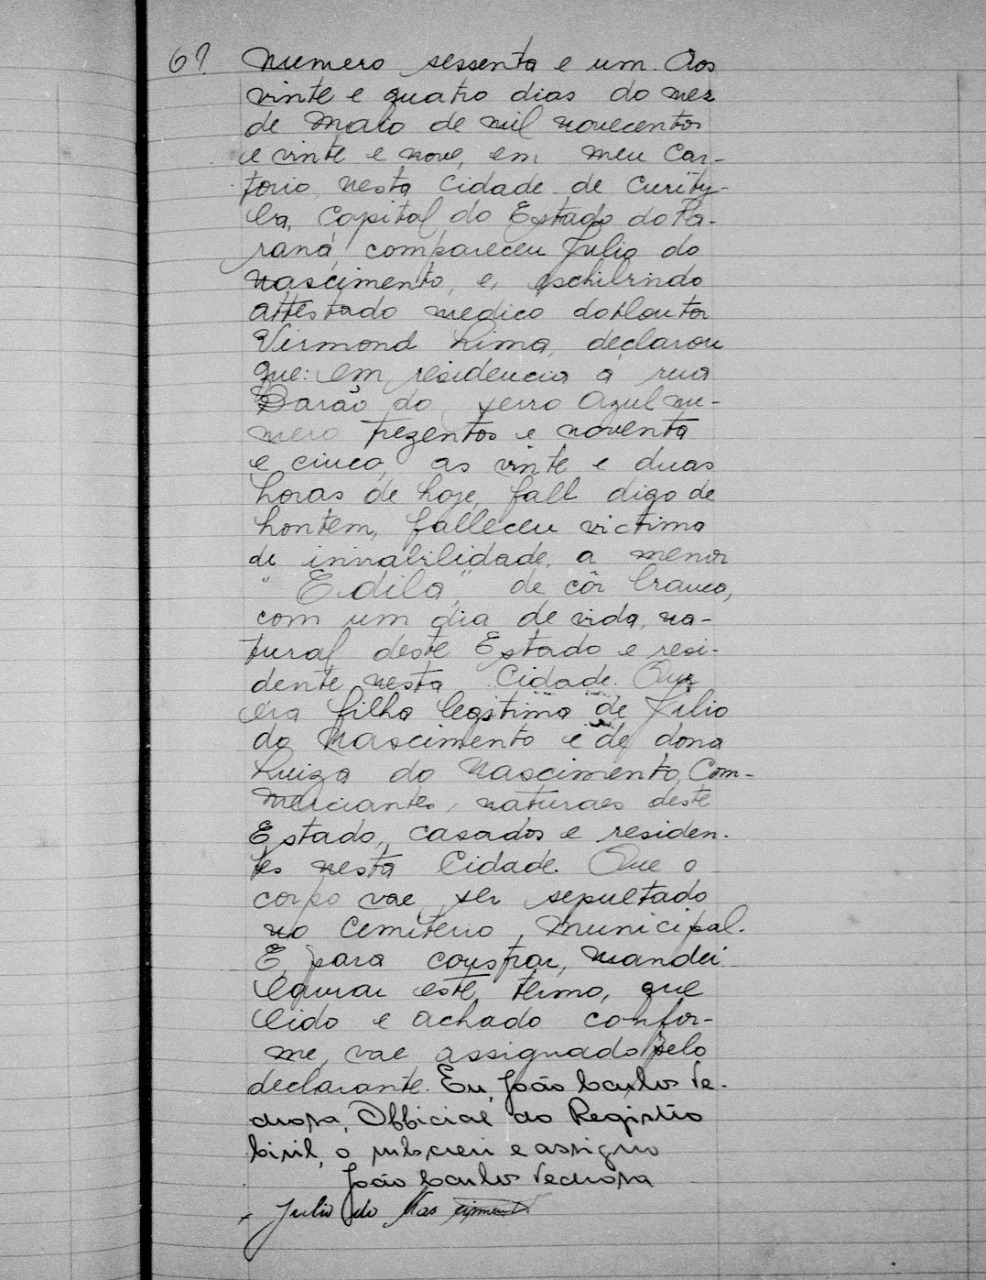 61. Numero sessenta e um. Aos
vinte e quatro dias do mez
de Maio de mil novecentos
e vinte e nove, em meu Car-
torio, nesta Cidade de Curity-
ba, Capital do Estado do Pa-
raná, compareceu Julio do
Nascimento, e, exhibindo
attestado medico do Doutor
Vermond Lima, declarou
que: em residencia á rua
Barão do Serro Azul nu-
mero trezentos e noventa
e cinco, as vinte e duas
horas de hoje, fall digo de
hontem, falleceu victima
de inviabilidade, a menor
"Edila", de côr branca,
com um dia de vida, na-
tural deste Estado e resi-
dente nesta Cidade. Que
éra filha legitima de Julio
do Nascimento e de dona
Luiza do Nascimento, Com-
merciantes, naturaes deste
Estado, casados e residen-
tes nesta Cidade. Que o
corpo vae ser sepultado
no Cemiterio Municipal.
E para constar, mandei
lavrar este termo, que
lido e achado confor-
me, vae assignado pelo
declarante. Eu, João Carlos Pe-
drosa, Official do Registro
Civil, o subscrevi e assigno
João Carlos Pedrosa
Julio do Nascimento